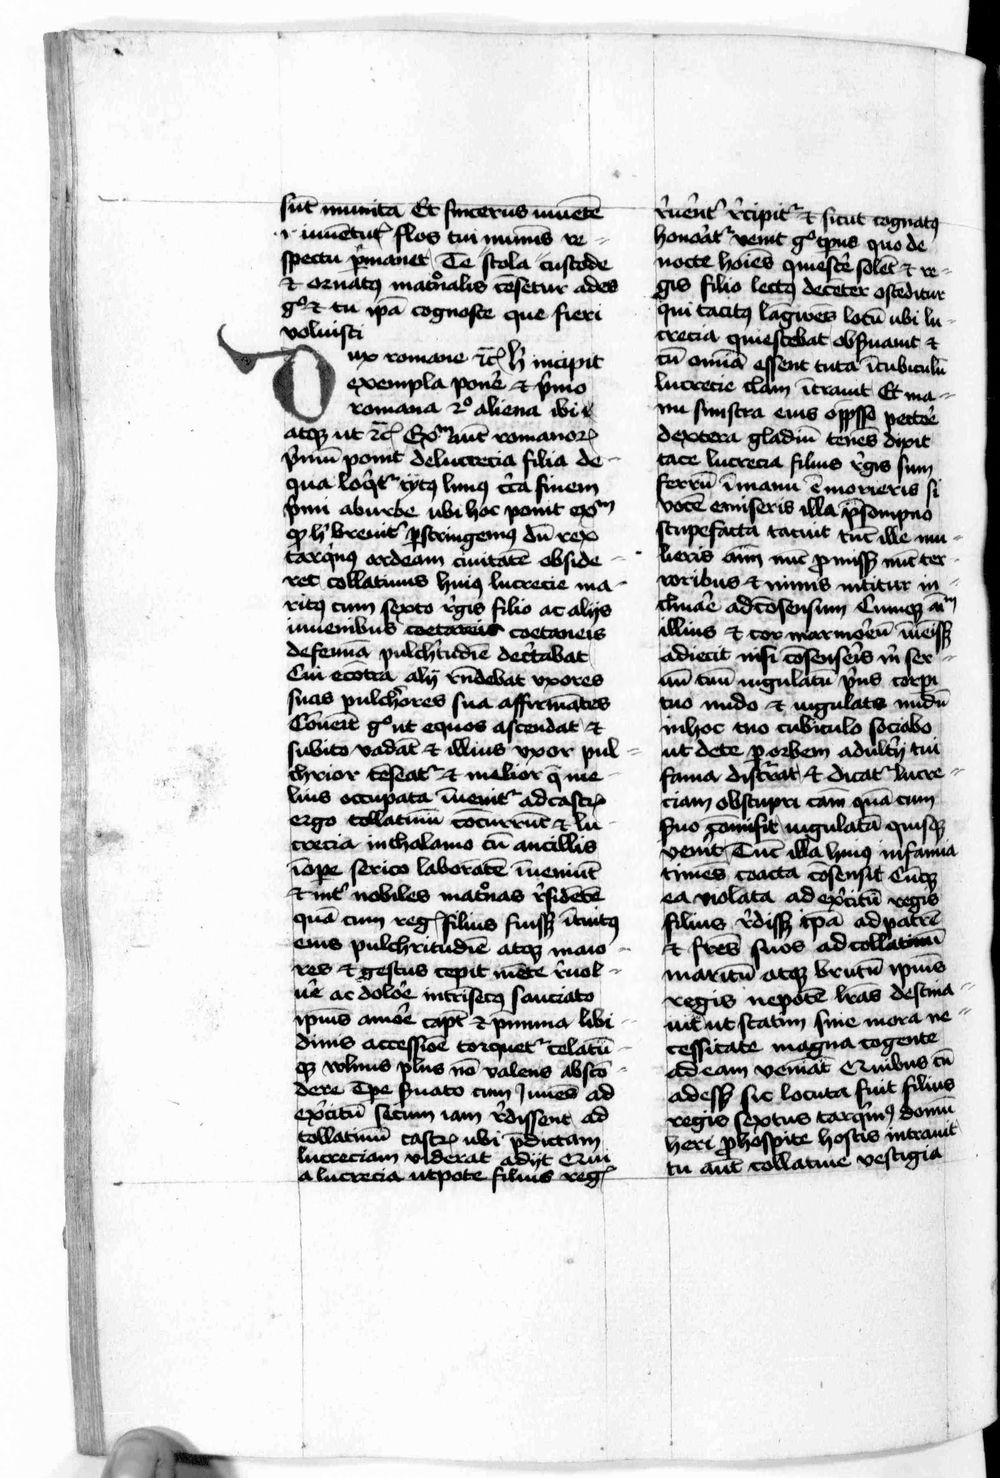 sūt munita Et sincerus iuuēte
r iuuētutꝫ flos tui numīs re-
spectu ꝑmanet Te stola custode
et ornatꝰ matr̄onalis cēsetur ades
gͦ et tu ip̄a cognosce que fieri
voluisti
Dux romane ꝛc̄ h̄ incipit
exempla poner̄e et p̄mo
romana 2ͦ aliena ibi
atqꝫ ut ꝛc̄ Exͫ aūt romanoꝝ
p̄mū ponit delucrecia filia de
qua loqͥt᷑ tytꝰ liuiꝰ cͥca finem
p̄mi aburbe ubi hoc ponit exͫ
qꝫ h̄ breuit᷑ ꝑstringemꝰ dū rex
tarqͥnꝰ ardeam ciuitatē obside-
ret collatinus huiꝰ lucrecie ma-
ritꝰ cum sexto r̄gis filio ac alijs
iuuenibus coetaneis
defemīa pulchͥtudīe decͥtabat
Cui ecōtra alij rn̄debat vxores
suas pulchͥores sua affirmātes
Cōuenit gͦ ut equos ascendāt et
subito vadāt et illius vxor pul-
chrior cēseat᷑ et melior q̄ me-
lius occupata īuenit᷑ ad castꝝ
ergo collatinū cōcurrūt et lu-
crecia inthalamo cū ancillis
īope serico laborātē īueniūt
et int᷑ nobiles matr̄onas r̄sidētē
quā cum regꝫ filius fuissꝫ ītuitꝰ
eius pulchritudīe atqꝫ maio-
res et gestus cepit mēte r̄uol-
uer̄e ac dolor̄e intrisecꝰ sauciato
ipiūs amor̄e capt᷑ et p̄nimia libi-
dinis accessioē torquet᷑ celatū-
qꝫ vulnus plus nō valens abscō-
dere Tp̄e p̄uato cum iuuēs ad
exͥcitū secum iam r̄dissent ad
collatinū castꝝ ubi p̄dictam
lucreciam viderat adijt Qui
a lucrecia utpote filius regꝫ
r̄uēnt᷑ r̄cipit᷑ et sicut cognatꝰ
honorat᷑ venit gͦ tp̄us quo de
nocte hoīes quiescer̄e solēt et re-
gis filio lectꝰ decēter ostēditur
qui tacitꝰ lāgwēs locū ubi lu-
crecia quiescebat obsͥuauit et
cū omīa essent tuta ī cubiculū
lucrecie clam ītrauit Et ma-
nu sinistra eius oppsso pector̄e
dextera gladiū tenēs dixit
tace lucrecia filius r̄gis sum
ferrū ī manu ē morieris si
vocē emiseris illa p̄sompno
stupefacta tacuit tūc ille mu-
lieris aīm nūc ꝓmissꝫ nūc ter-
roribus et minis nititur in-
clinar̄e ad cōsensum Cumqꝫ aīm
illius et cor marmor̄eū īuēissꝫ
adiecit nisi cōsenseris m̄ ser-
uū tuū iugulatū p̄us corpi
tuo nudo et iugulate nudū
inhoc tuo cubiculo sociabo
ut dete ꝑ orbem adultͥij tui
fama discͥrat et dicat᷑ lucre-
ciam obstupri cām quā cum
s̄uo cōmisit iugulatā quisqꝫ
venīt Tūc illa huiꝰ infamīa
timēs coacta cōsensit Cūqꝫ
ea violata ad exͥcitū regis
filius r̄dissꝫ ip̄a ad patrē
et fr̄es suos ad collatinū
maritū atqꝫ brutū ipiūs
regis nepotē lr̄as destina-
uit ut statim sine mora ne-
cessitate magna cogente
ad eam veniāt Quibus cū
adessꝫ sic locuta fuit filius
regis sextus tarqͥniꝰ domū
heri ꝓ hospite hostis intrauit
tu aūt collatine vestigia